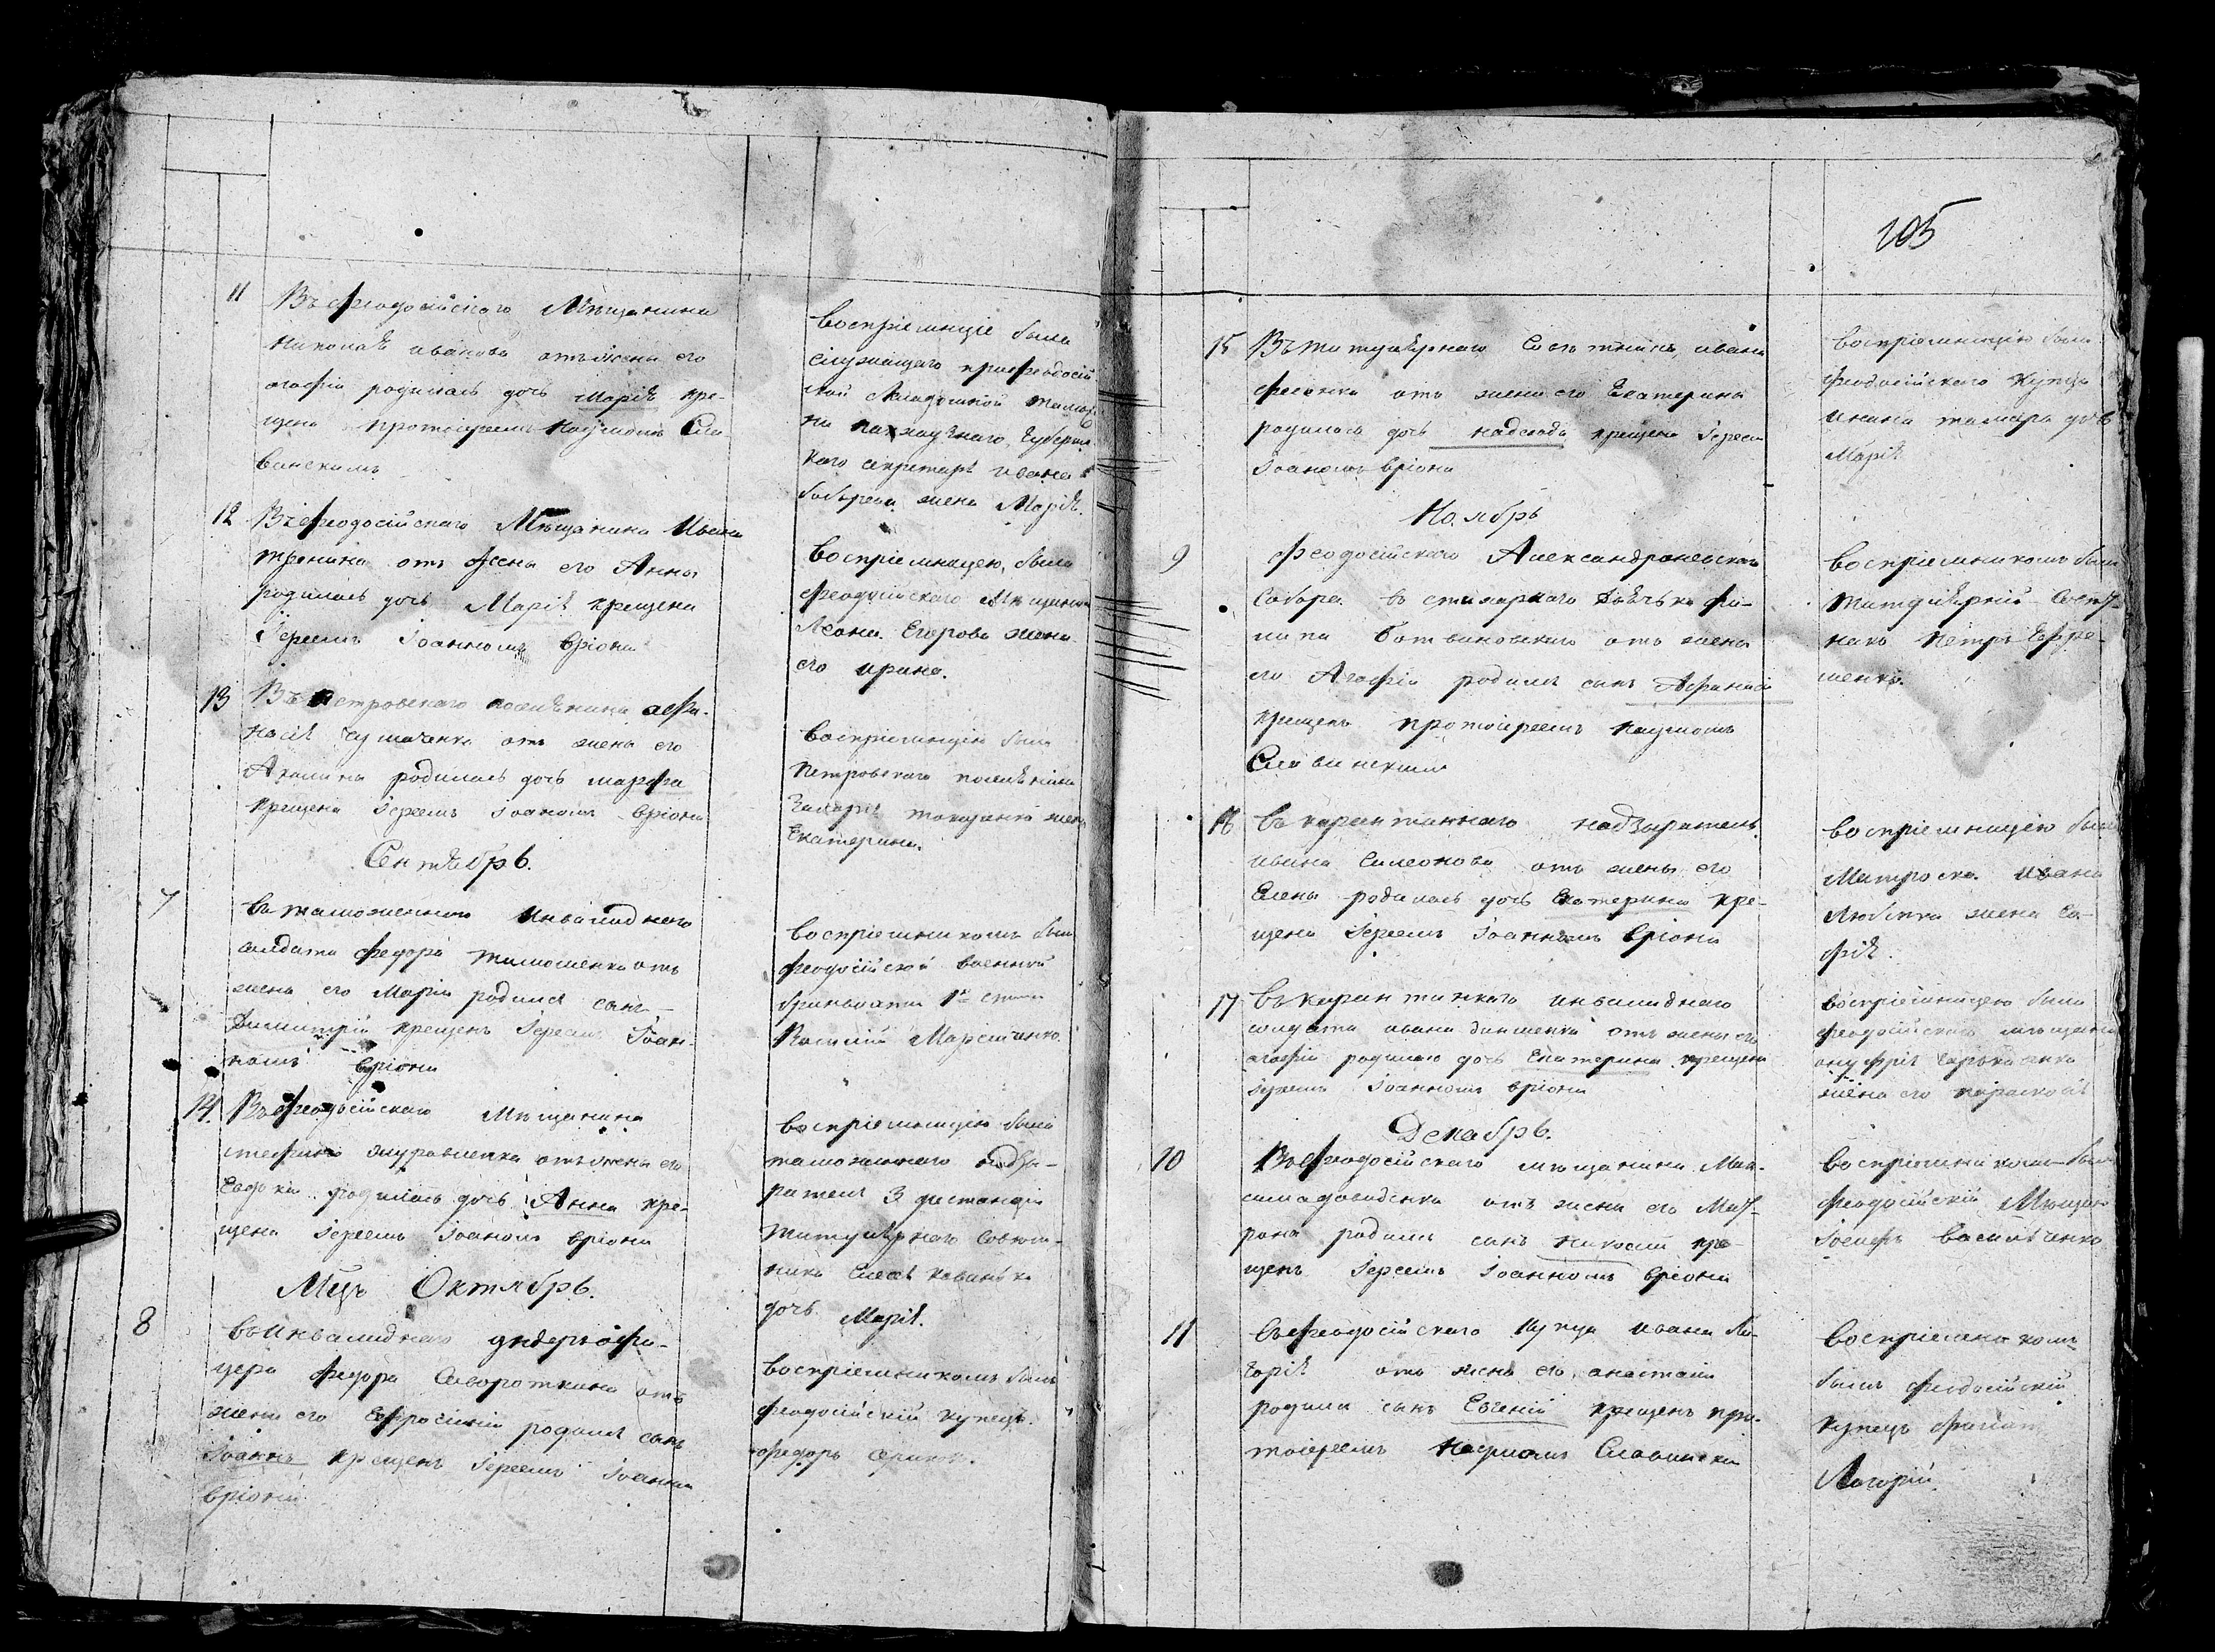 11 Въ феодосійского Мѣщанина
Николая иванова отъ жены его
агафіи родилась дочь Марія кре-
щена протоіереемъ Наумомъ Сла-
винскимъ
воспріемницею была
служащаго при феодосій-
ской
Губернс-
кого секретаря ивана
жена Марія.
12 Въ феодосійского Мѣщанина Ивана
отъ жены его Анны
родилась дочь Марія крещена
Іереемъ Іоанномъ Вріони
Воспріемницею, была
феодосійского Мѣщанина
Егорова жена
его ирина.
13 Въ петровского поселянина афа-
насія чумаченка отъ жены его
Акилины родилась дочь марфа
крещена Іереемъ Іоаномъ Вріони
воспріемницею была
Петровского поселянина
жена
Екатерина.
Сентябрь.
7 Въ таможенного Инвалиднего
солдата Федора тимошенка отъ
жены его Маріи родился сынъ
Димитрій крещенъ Іереемъ Іоан-
номъ Вріони
воспріемникомъ былъ
феодосійской военной
1й
Василій
14. Въ феодосійского Мѣщанина
стефана журавленка отъ жены его
Евдокіи родилась дочь Анна кре-
щена Іереемъ Іоаномъ Вріони
воспріемницею была
таможенного надзи-
рателя 3 дистанціи
титулярного Совет-
ника
дочь Марія.
Мцъ Октябрь.
8 Въ Инвалиднего ундеръ офи-
цера Федора Сивороткина отъ
жены его Ефросиніи родился сынъ
Іоаннъ крещенъ Іереемъ Іоанном
Вріони
Воспріемникомъ былъ
феодосійскій купецъ
федоръ
105
15 Въ титулярнаго Советника, ивана
фесенка отъ жены его Екатерины
родилась дочь надежда крещена Іереем
Іоаномъ Вріони
воспріемницею была
феодосійского Купца
дочь
Марія
Ноябрь
9 Феодосійского Александроневского
Собора въ стихарного дьячька фи-
липа Ботвиновского отъ жены
его Агафіи родился сынъ Афанасій
крещенъ протоіереемъ Наумомъ
Славинскимъ
воспріемникомъ былъ
титулярній Совет-
никъ Петръ Ефре-
менко.
16 Въ карантинного надзирателя
ивана Симеонова отъ жены его
Елены родилась дочь Екатерина кре-
щена Іереемъ Іоанномъ Вріони
воспріемницею была
Матроса Ивана
жена Со-
фія.
17 Въ карантинного инвалиднаго
солдата ивана отъ жены его
агафіи родилась дочь Екатерина крещена
Іереемъ Іоанномъ Вріони
воспріемницею была
феодосійского мѣщанина
онуфрія
жена его парасковія
Декабрь.
10 Въ феодосійского мѣщанина Мак-
сима давиденка отъ жены его Мат-
роны родился сынъ Николай кре-
щенъ Іереемъ Іоанномъ Вріони
воспріемникомъ былъ
феодосійскій Мѣщан
Іосифъ Василяченко
11 Въ феодосійского Купца ивана Ла-
горія отъ жены его, анастасіи
родился сынъ Евгеній крещенъ про-
тоіереемъ Наумомъ Славински
Воспріемникомъ
былъ феодосійскій
купецъ
Лагорій.